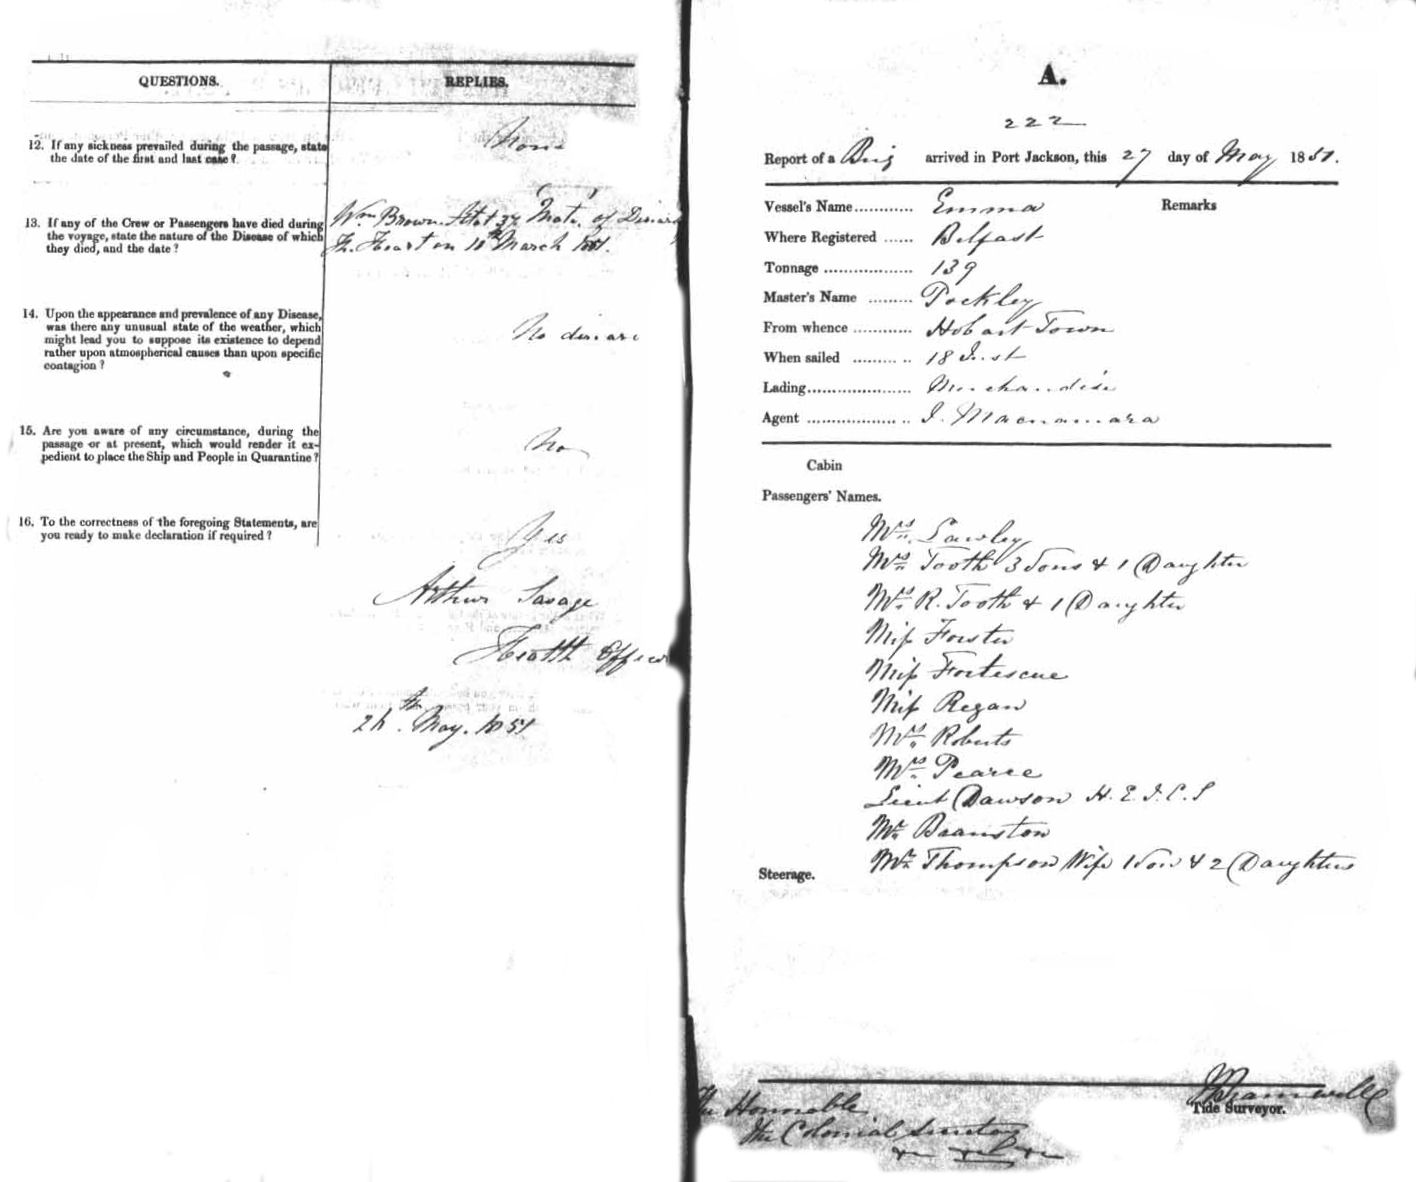 QUESTIONS. REPLIES.
12. If any sickness prevailed during the passage, state
the date of the first and last case?
None
13. If any of the Crew or Passengers have died during
the voyage, state the nature of the Disease of which
they died, and the date?
Wm Brown. Ætat 37 Mate, of Disease
Heart on 10th March 1851.
14. Upon the appearance and prevalence of any Disease,
was there any unusual state of the weather, which
might lead you to suppose its existence to depend
rather upon atmospherical causes than upon specific
contagion?
No disease
15. Are you aware of any circumstance, during the
passage or at present, which would render it ex-
pedient to place the Ship and People in Quarantine?
No
16. To the correctness of the foregoing Statements, are
you ready to make declaration if required?
Yes
Arthur Savage
Health Officer
May. 1851
A.
222
Report of a Brig arrived in Port Jackson, this 27 day of May 1851.
Vessel's Name............ Emma Remarks
Where Registered ...... Belfast
Tonnage .................. 139
Master's Name ......... Pockley
From whence ............ Hobart Town
When sailed ......... .. 18 Inst
Lading..................... Merchandise
Agent .................. .. Macnamara
Cabin
Passengers' Names.
Mrs Lawley
Mrs Tooth 3 Sons & 1 Daughter
Mrs R. Tooth & 1 Daughter
Miss Forster
Miss Fortescue
Miss Regan
Mrs Roberts
Mrs Pearce
Lieut Dawson H.E.I.C.S
Mr Branston
Steerage. Mr Thompson Wife 1 Son & 2 Daughters
Bramwell
Tide Surveyor.
The Honorable
The Colonial Secretary